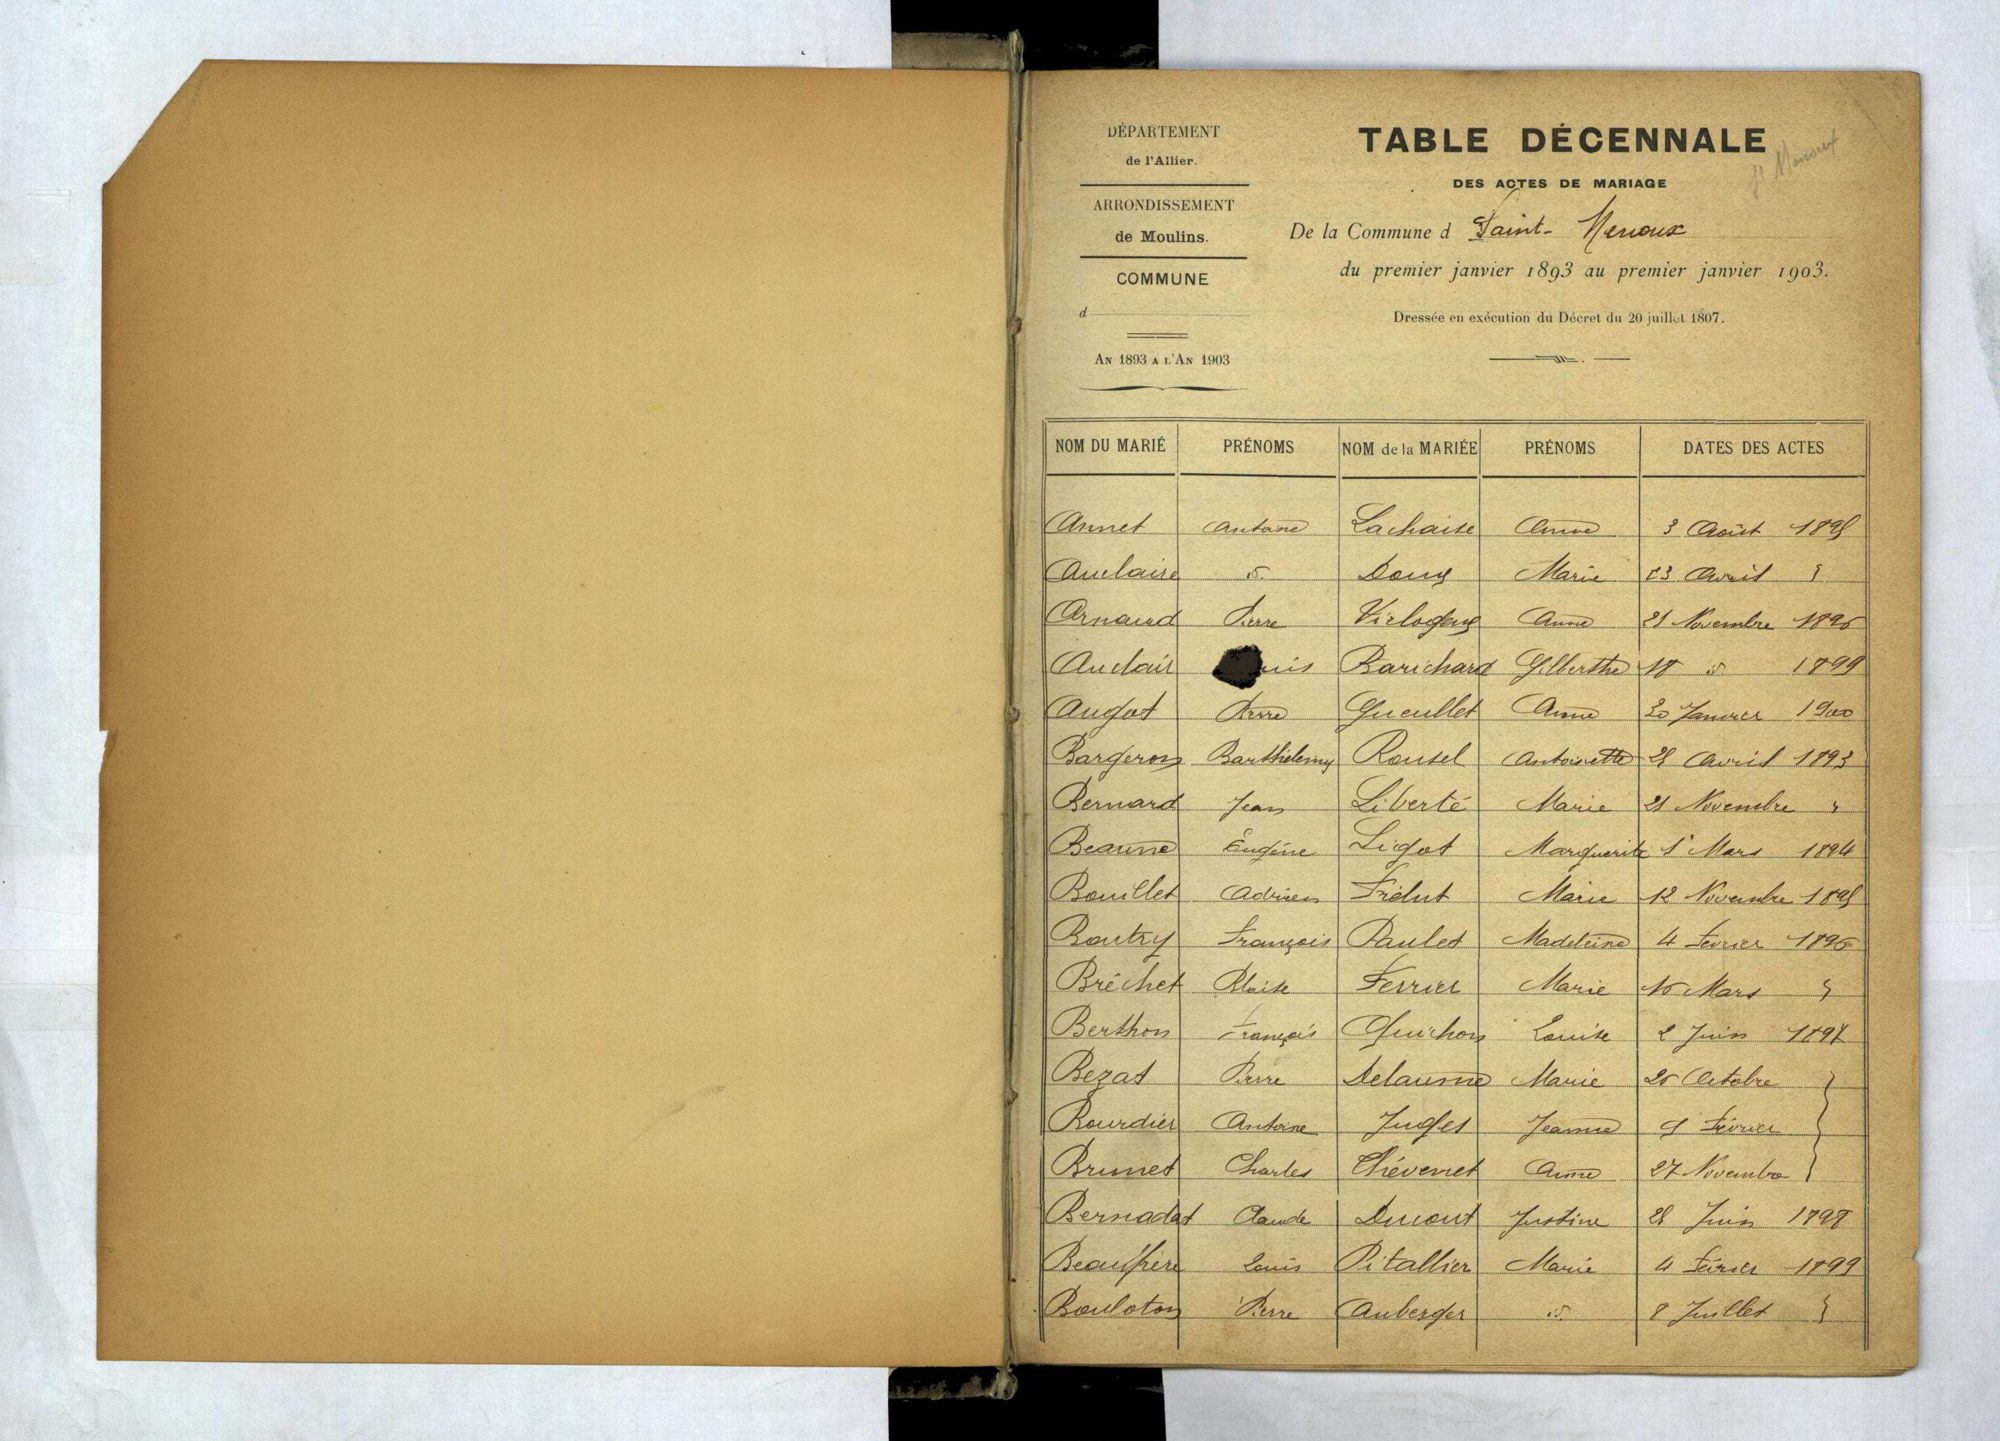 DÉPARTEMENT
de l'Allier.
ARRONDISSEMENT
de Moulins.
COMMUNE
d
AN 1893 A L'AN 1903
TABLE DÉCENNALE
St Menoux
DES ACTES DE MARIAGE
De la Commune d Saint-Menoux
du premier janvier 1893 au premier janvier 1903.
Dressée en exécution du Décret du 20 juillet 1807.
NOM DU MARIÉ PRÉNOMS NOM de la MARIÉE PRÉNOMS DATES DES ACTES
Annet Antoine Lachaise Anne 3 Août 1895
Auclaire d. Marie 23 Avril "
Arnaud Pierre Virlogeux Anne 21 Novembre 1896
Auclair uis Barichard Gilberthe 18 d. 1899
Augot Pierre Gueullet Anne 20 Janvier 1900
Bargeron Barthélemy Antoinette Avril 1893
Bernard Jean Liberté Marie 21 Novembre "
Beaune Eugène Ligot Marguerite 1er Mars 1894
Bouillet Adrien Marie 12 Novembre 1895
Boutry François Paulet Madeleine 4 Février 1896
Bréchet Blaise Ferrier Marie 16 Mars "
Berthon François Guichon Louise 2 Juin 1897
Bezat Pierre Delaume Marie 26 Octobre
Bourdier Antoine Juges Jeanne 9 Février
Brunet Charles Chévenet Anne 27 Novembre
Bernadat Claude Ducout Justine Juin 1898
Beaufrère Louis Pitallier Marie 4 Février 1899
Bouloton Pierre Auberger d. 8 Juillet "